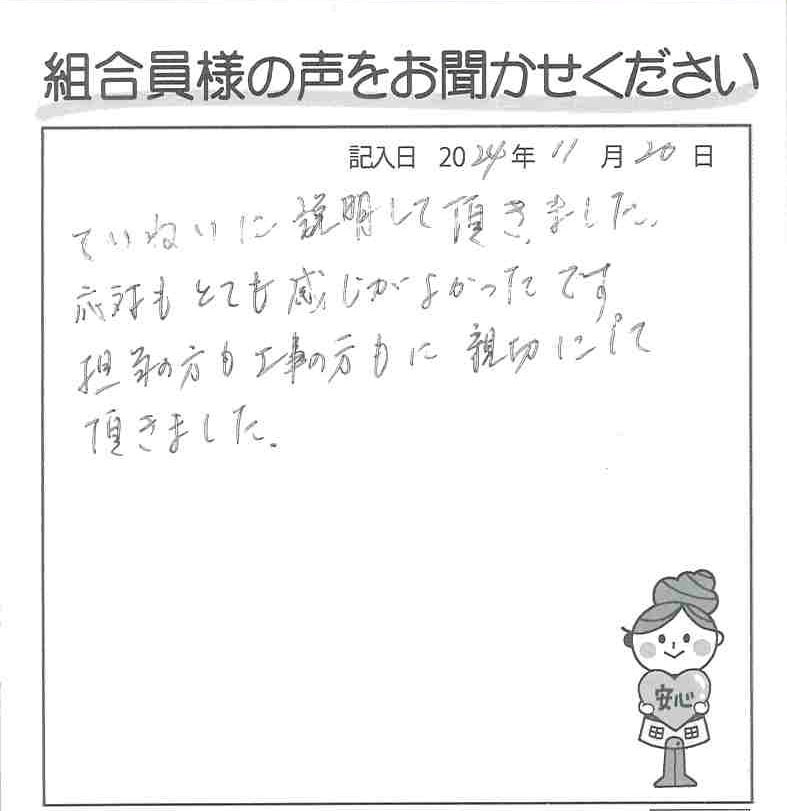 組合員様の声をお聞かせください
記入日 2024年 11月 20日
ていねいに説明して頂きました。
応対もとても感じがよかったです
担当の方も工事の方もに親切にして
頂きました。
安心